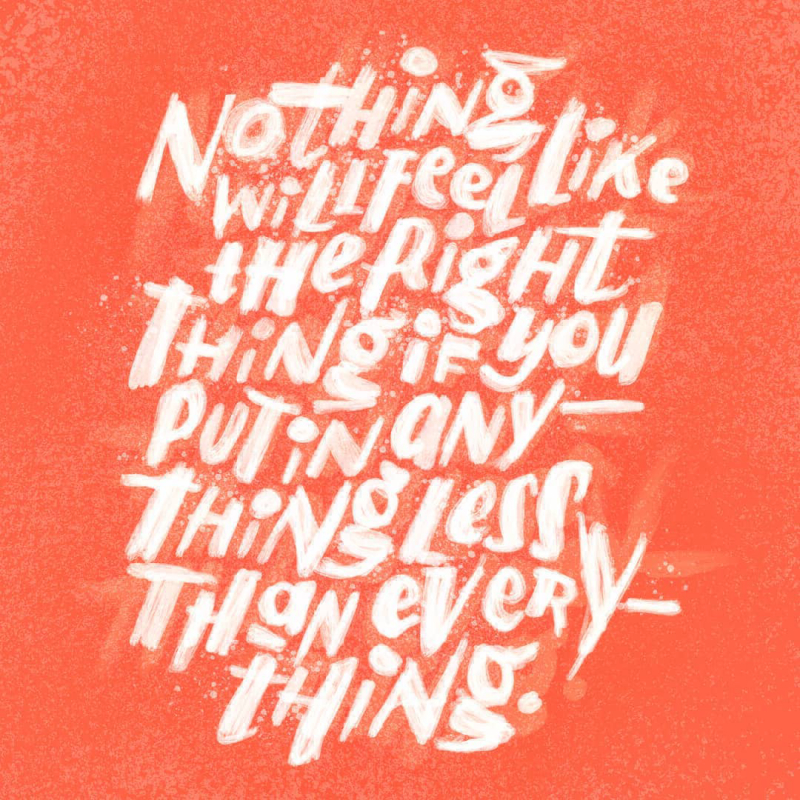 NOTHING
WILL FEEL LIKE
THE RIGHT
THING IF YOU
PUT IN ANY—
THING LESS
THAN EVERY—
THING.